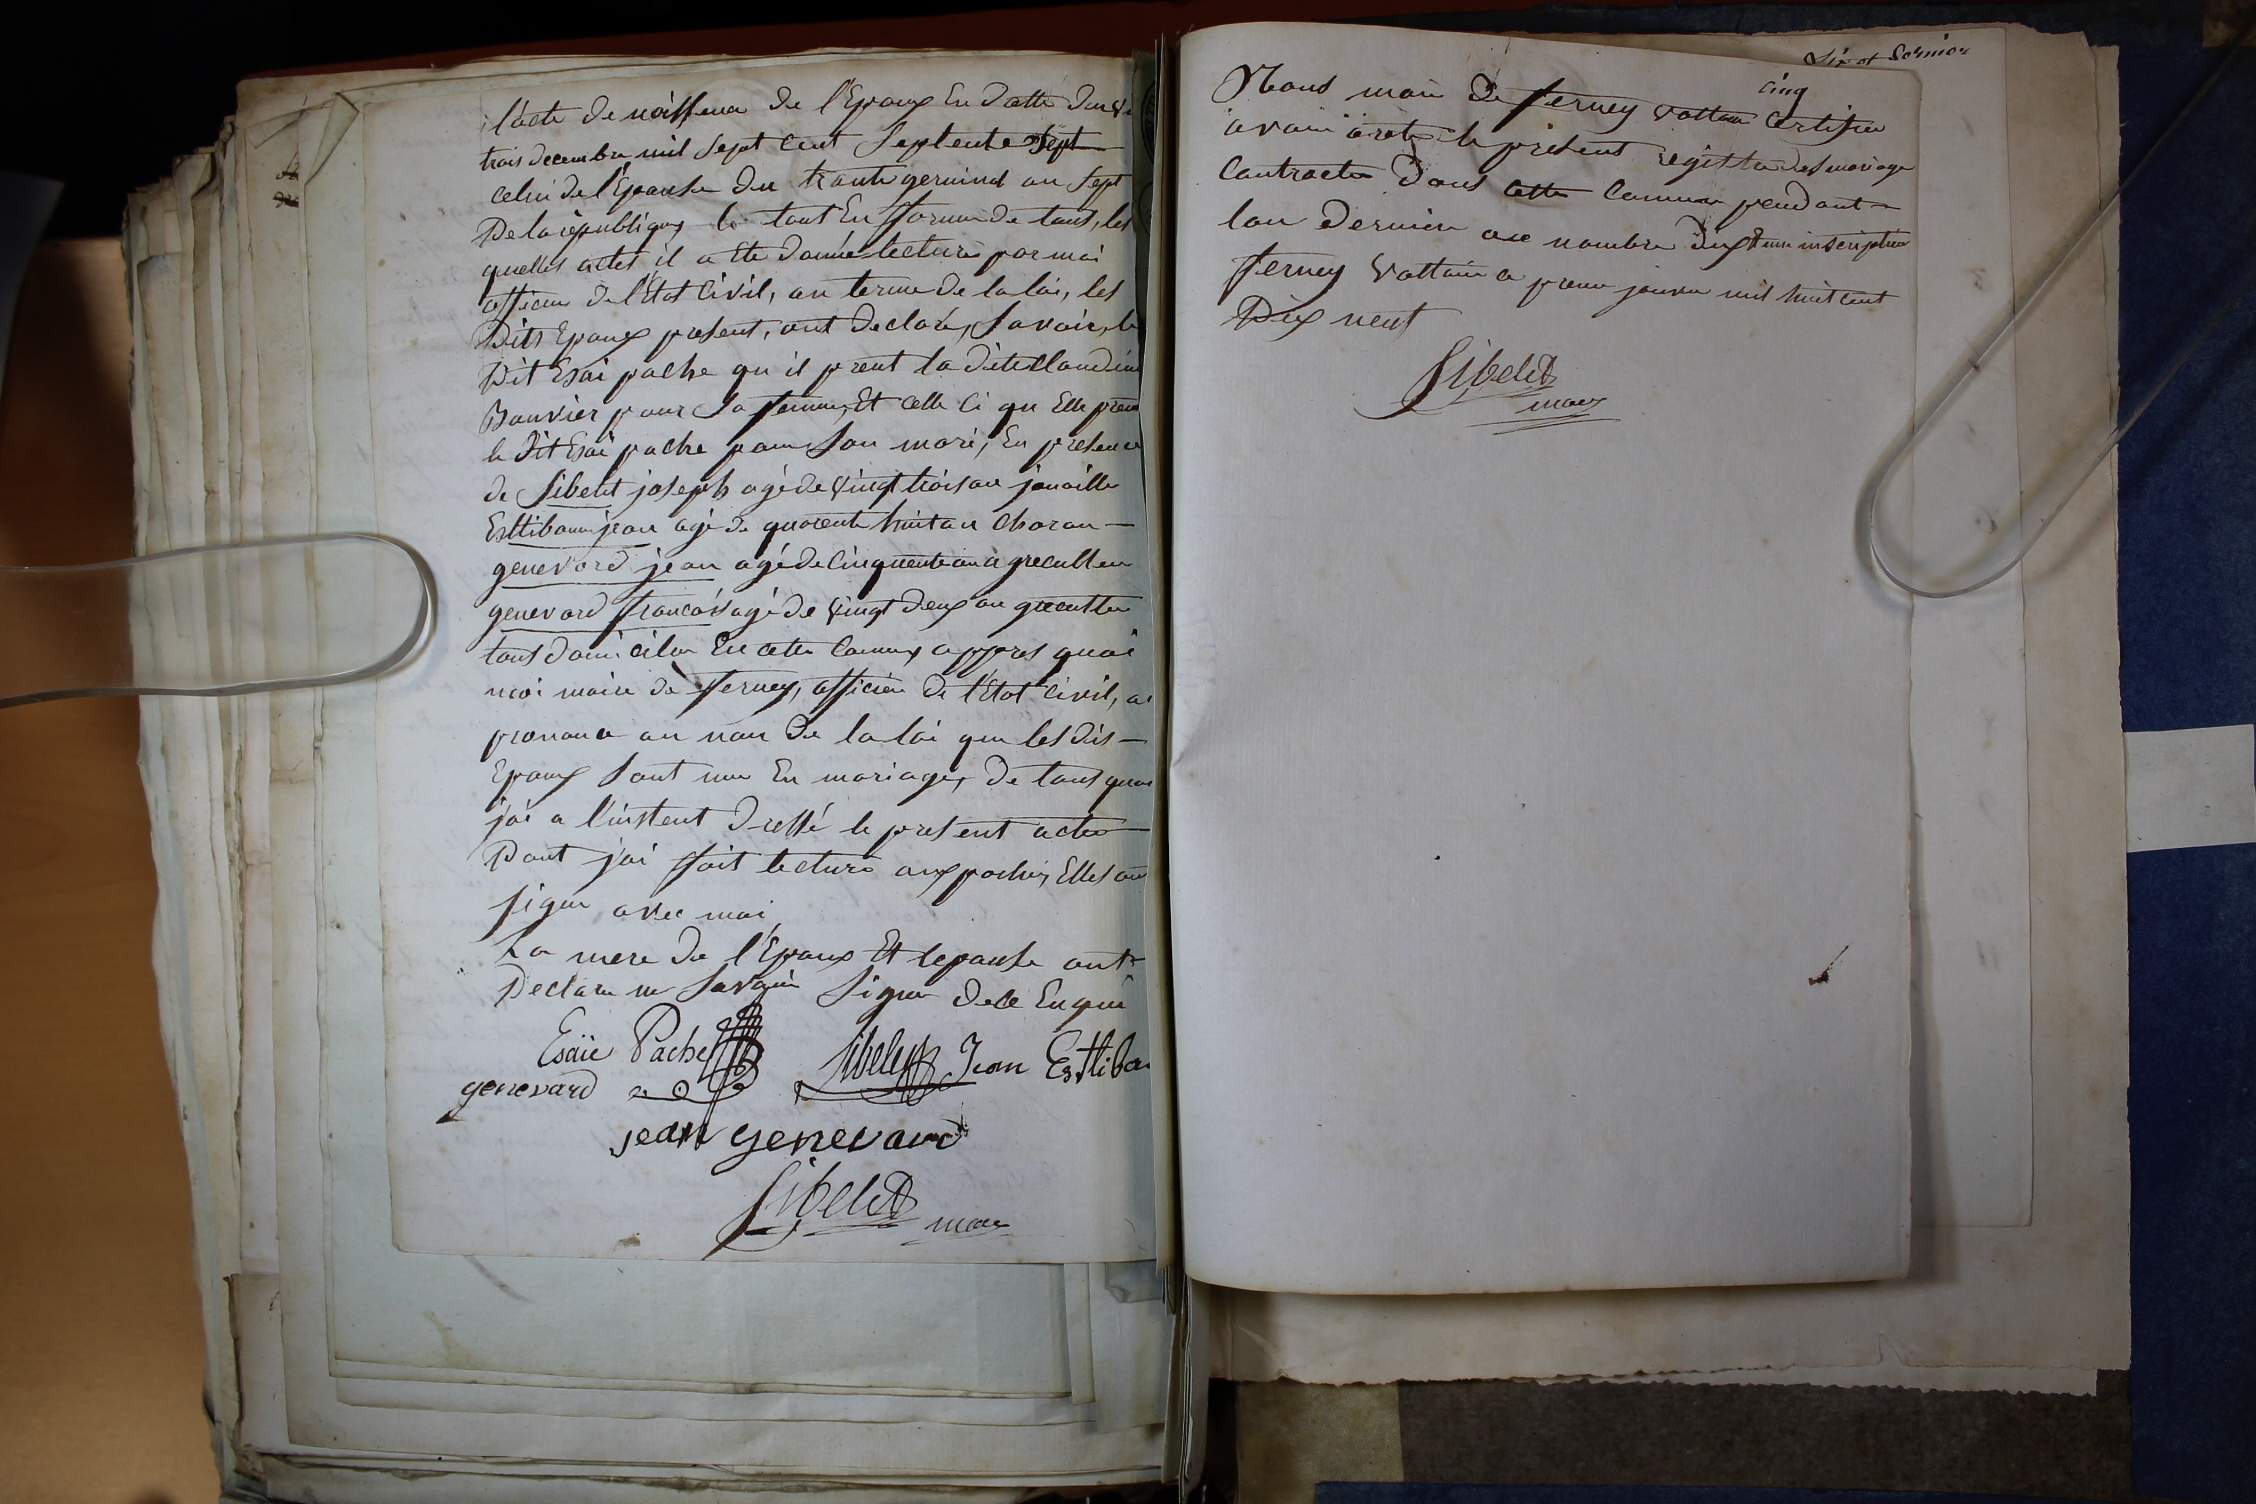 l'acte de naissence de l'Epoux En datte du
trois decembre mil sept cent septente sept
celui de l'Epouse du trante germinal an sept
De la republique le tout En forme de tous, les
quelles actes il a ete donnée lecture par moi
officier de l'Etat Civil, au terme de la loi, les
Dits Epoux present, ont declaré, savoir, le
Dit Esaï pache qu il prent la dite Claudine
Bouvier pour sa femme, Et celle ci qu Elle prent
le dit Esaï pache pour son mari, En presence
de Sibelit joseph agé de vingt trois an
Esttibou jean agé de quarente huit an
genevard jean agé de Cinquente an
genevard francois agé de vingt deux an
tous domicilie En cette Commune appres quoi
moi maire de ferney, officier de l'Etat Civil, ai
prononcé au nom de la loi que les dis
Epoux sont uni En mariage, De tous quoi
j'ai a l'instent dressé le present acte
Dont j'ai fait lecture aux parties, Elles ont
signé avec moi
La mere de l'Epoux Et lepouse ont
Declaré ne savoir signer
Esaïe Pache Sibelit Jean Esttibou
genevard
jean genevard
Sibelit
maire
Six et dernier
cinq
Nous maire de ferney voltaire Certifie
avoir areté le présent registre des mariage
Contracté dans cette Commune pendant
lan dernier au nombre dix inscription
ferney Voltaire ce premier janvier mil huit cent
Dix neuf
Sibelit
maire